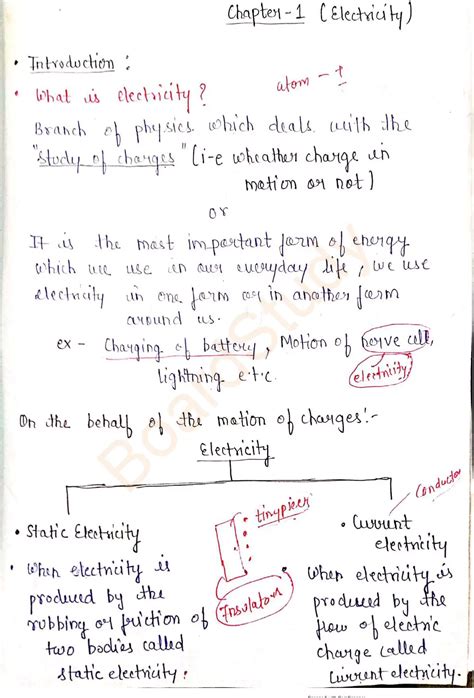 Chapter-1 (Electricity)
• Introduction :
• What is electricity ?
atom - +
Branch of physics which deals with the
"study of charges" (i-e wheather charge in
motion or not)
or
It is the most important form of energy
which we use in our everyday life, we use
electricity in one form or in another form
around us.
ex - Charging of battery, Motion of nerve cell,
lightning e.t.c.
electricity
On the behalf of the motion of charges:-
Electricity
• Static Electricity
• When electricity is
produced by the
rubbing or friction of
two bodies called
static electricity.
tiny pieces
Insulator
Conductor
• Current
electricity
When electricity is
produced by the
flow of electric
charge called
Current electricity.
Board Study